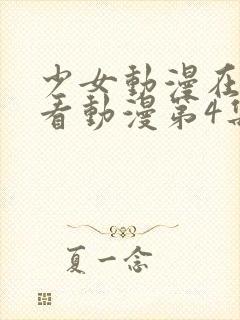 少女動漫在
看動漫第4集
夏一念